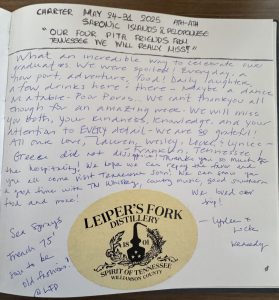 CHARTER MAY 24-31 2025 ATH-ATH
SARONIC ISLANDS & PELOPONNESE
"OUR FOUR PITA FRIENDS FROM
TENNESSEE WE WILL REALLY MISS!"
What an incredible way to celebrate our
graduates. We were spoiled! Everyday, a
new port, adventure, food, balni, laughter,
a few drinks here + there - maybe a dance
We can't thank you all
enough for an amazing week. We will miss
you both, your kindness, knowledge and your
attention to EVERY detail - We are so grateful!
All our love, Lauren, Wesley, Luck + Lyndee -
Franklin, Tennessee!
Greece did not disappoint! Thank you so much for
the hospitality! We hope we can repay the favor and
you all come visit Tennessee soon! We can show you
a good time with TN Whiskey, country music, good southern
food and more!
We loved our
boy!
- Lyndee +
Luck
Kennedy
Sea Sprays
French 75
sure to be
old fashions!
@ LFD
LEIPER'S FORK
DISTILLERY
18 01
SPIRIT OF TENNESSEE
WILLIAMSON COUNTY